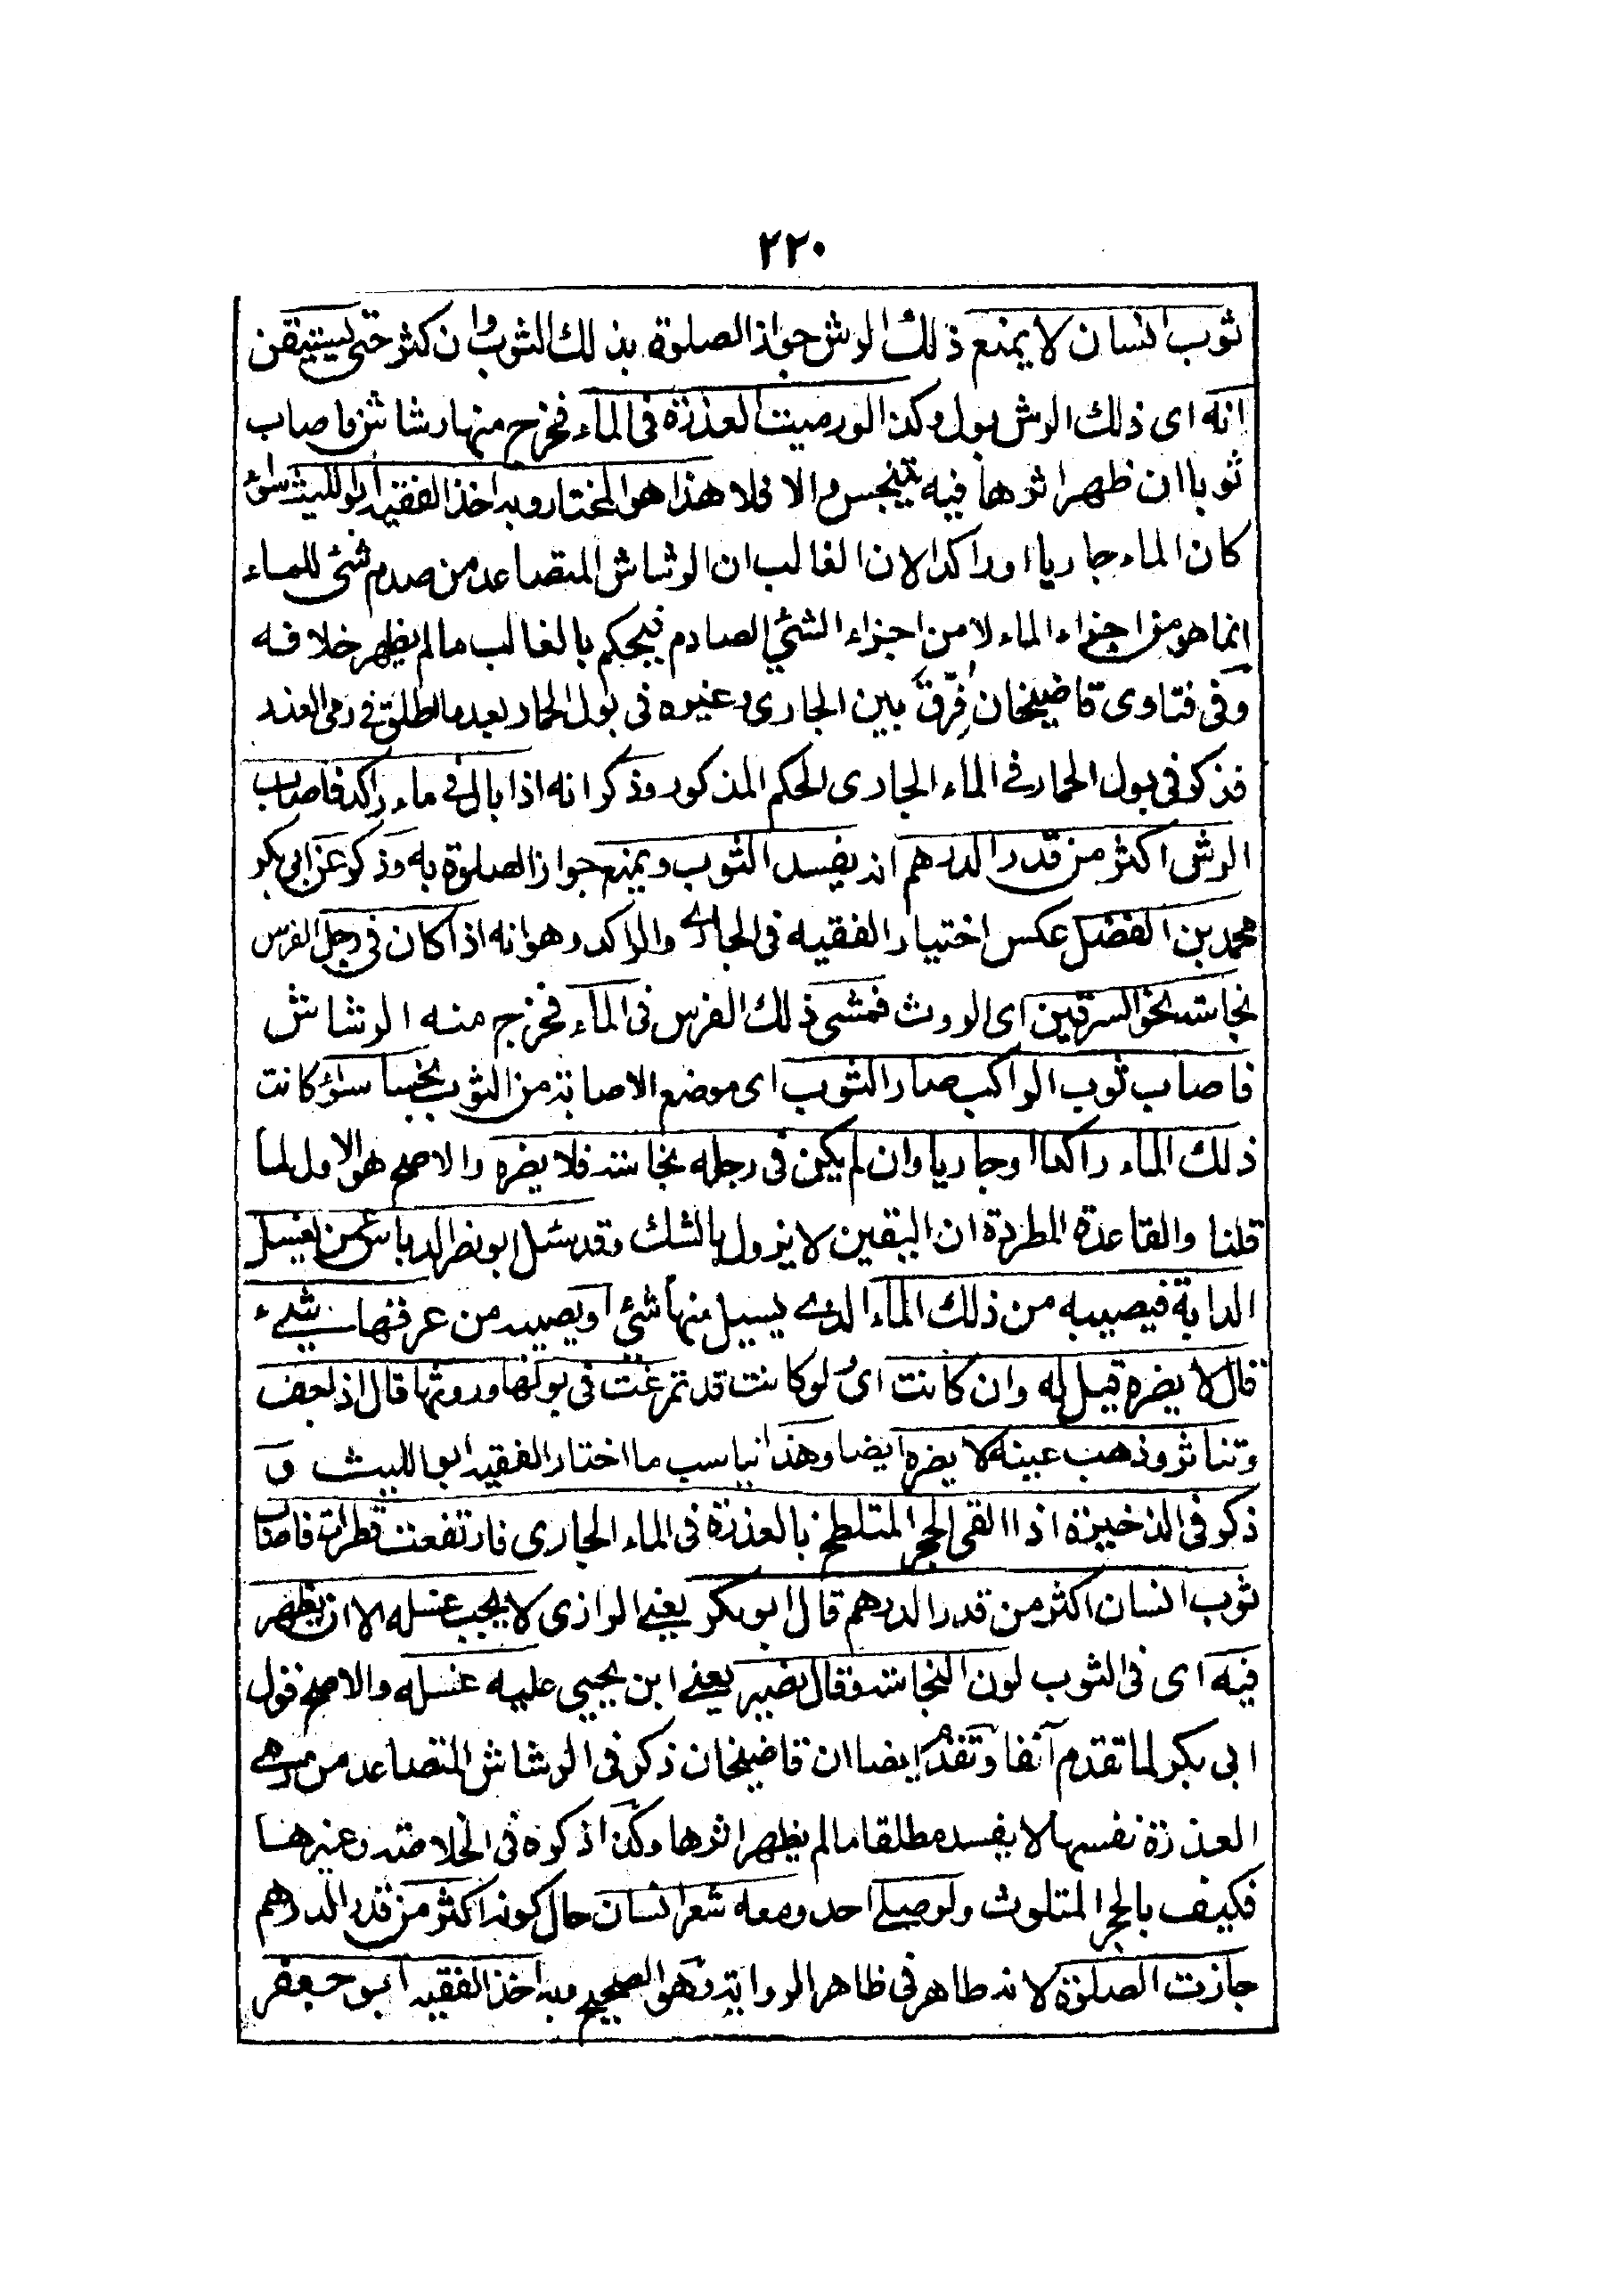 ٢٢٠
ثوب انسان لا يمنع ذلك الرش جواز الصلوة بذلك الثوب وان كثر حتى يستيقن
انه اى ذلك الرش بول وكذا لو رميت العذرة فى الماء فخرج منها رشاش فاصاب
ثوبا ان ظهر اثرها فيه يتنجس والا فلا هذا هو المختار وبه اخذ الفقيه ابو الليث سواء
كان الماء جاريا او راكدا لان الغالب ان الرشاش المتصاعد من صدم شئ للماء
انما هو من اجزاء الماء لا من اجزاء الشئ الصادم فيحكم بالغالب ما لم يظهر خلافه
وفى فتاوى قاضيخان فرق بين الجارى وغيره فى بول الحمار بعد ما اطلق فى رمى العذرة
فذكر فى بول الحمار فى الماء الجارى الحكم المذكور وذكر انه اذا بال فى ماء راكد فاصاب
الرش اكثر من قدر الدرهم انه يفسد الثوب ويمنع جواز الصلوة به وذكر عن ابى بكر
محمد بن الفضل عكس اختيار الفقيه فى الجارى والراكد وهو انه اذا كان فى رجل الفرس
نجاسة نحو السرقين اى الروث فمشى ذلك الفرس فى الماء فخرج منه الرشاش
فاصاب ثوب الراكب صار الثوب اى موضع الاصابة من الثوب نجسا سواء كانت
ذلك الماء راكدا او جاريا وان لم يكن فى رجله نجاسة فلا يضره والاصح هو الاول لما
قلنا والقاعدة المطردة ان اليقين لا يزول بالشك وقد سئل ابو نصر الدباس عمن يغسل
الدابة فيصيبه من ذلك الماء الذى يسيل منها شئ او يصيبه من عرفها شىء
قال لا يضره قيل له وان كانت اى لو كانت قد تمرغت فى بولها وروثها قال اذا جف
وتناثر وذهب عينه لا يضره ايضا وهذا يناسب ما اختار الفقيه ابو الليث و
ذكر فى الذخيرة اذا القى الحجر المتلطخ بالعذرة فى الماء الجارى فارتفعت قطرات فاصاب
ثوب انسان اكثر من قدر الدرهم قال ابو بكر يعنى الرازى لا يجب غسله الا ان يظهر
فيه اى فى الثوب لون النجاسة وقال نصير يعنى ابن يحيى عليه غسله والاصح قول
ابى بكر لما تقدم آنفا وتقدم ايضا ان قاضيخان ذكر فى الرشاش المتصاعد من رمى
العذرة نفسها لا يفسد مطلقا ما لم يظهر اثرها وكذا ذكره فى الخلاصة وغيرها
فكيف بالحجر المتلوث ولو صلى احد ومعه شعر انسان حال كونه اكثر من قدر الدرهم
جازت الصلوة لانه طاهر فى ظاهر الرواية وهو الصحيح وبه اخذ الفقيه ابو جعفر